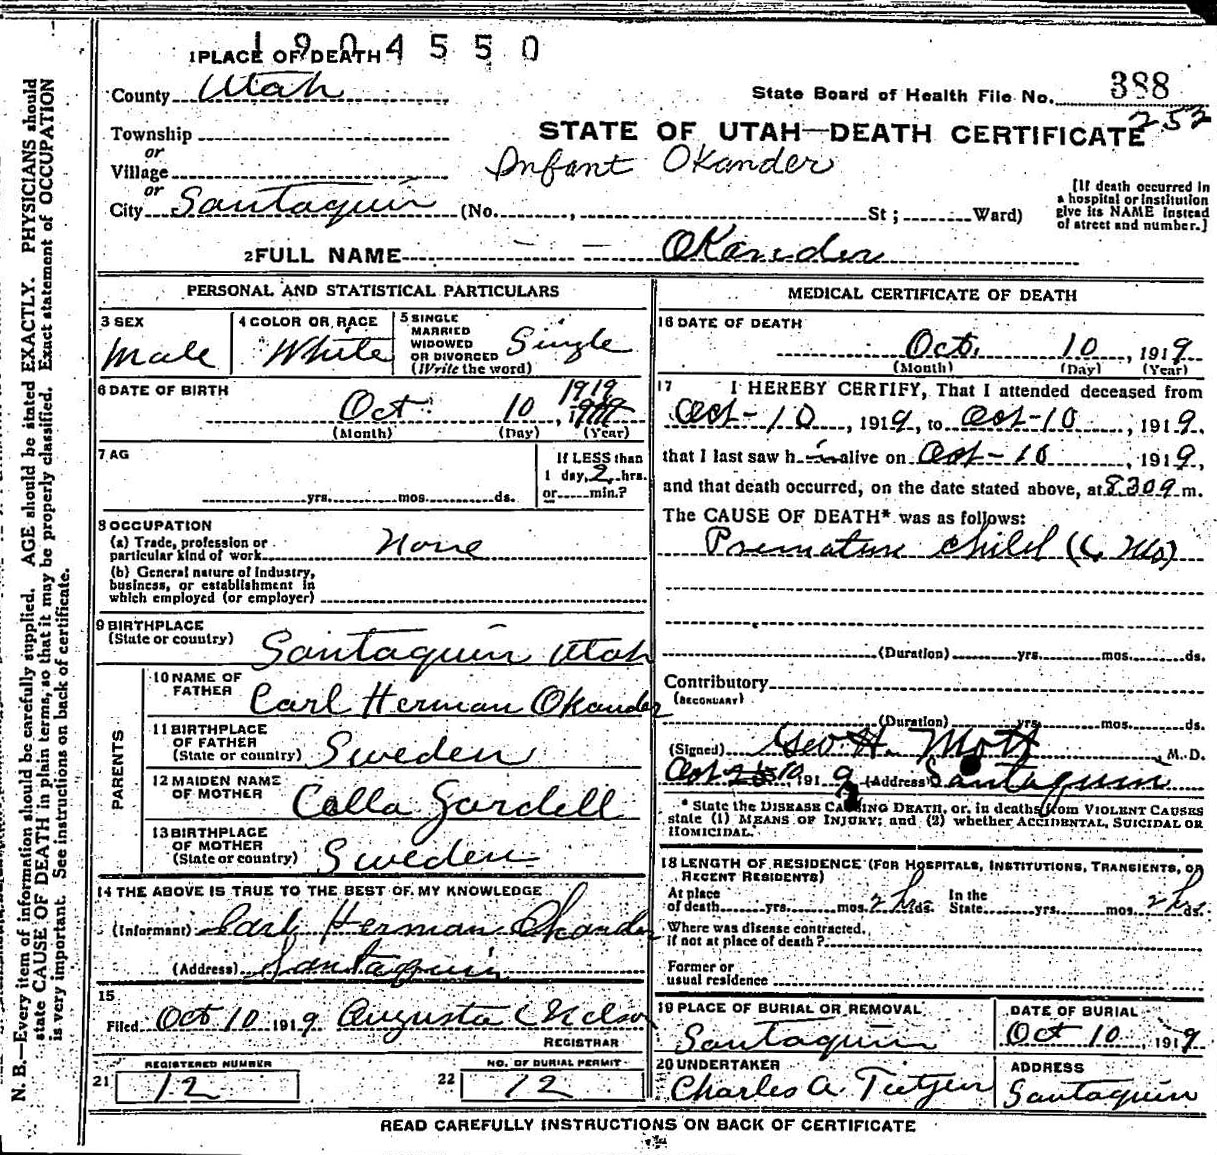 1904550
1 PLACE OF DEATH
County Utah
State Board of Health File No. 388
252
Township
or
STATE OF UTAH—DEATH CERTIFICATE
Village
Infant Okander
or
City Santaquin (No. , St ; Ward)
[If death occurred in
a hospital or institution
give its NAME instead
of street and number.]
2 FULL NAME Okander
PERSONAL AND STATISTICAL PARTICULARS
3 SEX
Male
4 COLOR OR RACE
White
5 SINGLE
MARRIED
WIDOWED
OR DIVORCED
(Write the word)
Single
6 DATE OF BIRTH
1919
Oct. 10, 1919
(Month) (Day) (Year)
7 AG
yrs. mos. ds.
If LESS than
1 day, 2 hrs.
or min.?
8 OCCUPATION
(a) Trade, profession or
particular kind of work None
(b) General nature of industry,
business, or establishment in
which employed (or employer)
9 BIRTHPLACE
(State or country) Santaquin Utah
PARENTS
10 NAME OF
FATHER Carl Herman Okander
11 BIRTHPLACE
OF FATHER
(State or country) Sweden
12 MAIDEN NAME
OF MOTHER Calla Gardell
13 BIRTHPLACE
OF MOTHER
(State or country) Sweden
14 THE ABOVE IS TRUE TO THE BEST OF MY KNOWLEDGE
(Informant) Carl Herman Okander
(Address) Santaquin
15
Filed Oct 10 1919 Augusta C Nelson
REGISTRAR
REGISTERED NUMBER
21 12
NO. OF BURIAL PERMIT
22 12
MEDICAL CERTIFICATE OF DEATH
16 DATE OF DEATH
Oct. 10, 1919
(Month) (Day) (Year)
17 I HEREBY CERTIFY, That I attended deceased from
Oct-10, 1919, to Oct-10, 1919,
that I last saw h im alive on Oct-10, 1919,
and that death occurred, on the date stated above, at 830 9 m.
The CAUSE OF DEATH* was as follows:
Premature child (6 Mo)
(Duration) yrs. mos. ds.
Contributory
(SECONDARY)
(Duration) yrs. mos. ds.
(Signed) Geo. H. Mott M. D.
Oct 10, 1919 (Address) Santaquin
* State the DISEASE CAUSING DEATH, or, in deaths from VIOLENT CAUSES
state (1) MEANS OF INJURY; and (2) whether ACCIDENTAL, SUICIDAL OR
HOMICIDAL.
18 LENGTH OF RESIDENCE (FOR HOSPITALS, INSTITUTIONS, TRANSIENTS, OR
RECENT RESIDENTS)
At place
of death yrs. mos. 2 hrs ds. In the
State yrs. mos. 2 hrs ds.
Where was disease contracted,
if not at place of death?
Former or
usual residence
19 PLACE OF BURIAL OR REMOVAL
Santaquin
DATE OF BURIAL
Oct 10, 1919
20 UNDERTAKER
Charles A. Tietjen
ADDRESS
Santaquin
READ CAREFULLY INSTRUCTIONS ON BACK OF CERTIFICATE
N. B.—Every item of information should be carefully supplied. AGE should be stated EXACTLY. PHYSICIANS should
state CAUSE OF DEATH in plain terms, so that it may be properly classified. Exact statement of OCCUPATION
is very important. See instructions on back of certificate.